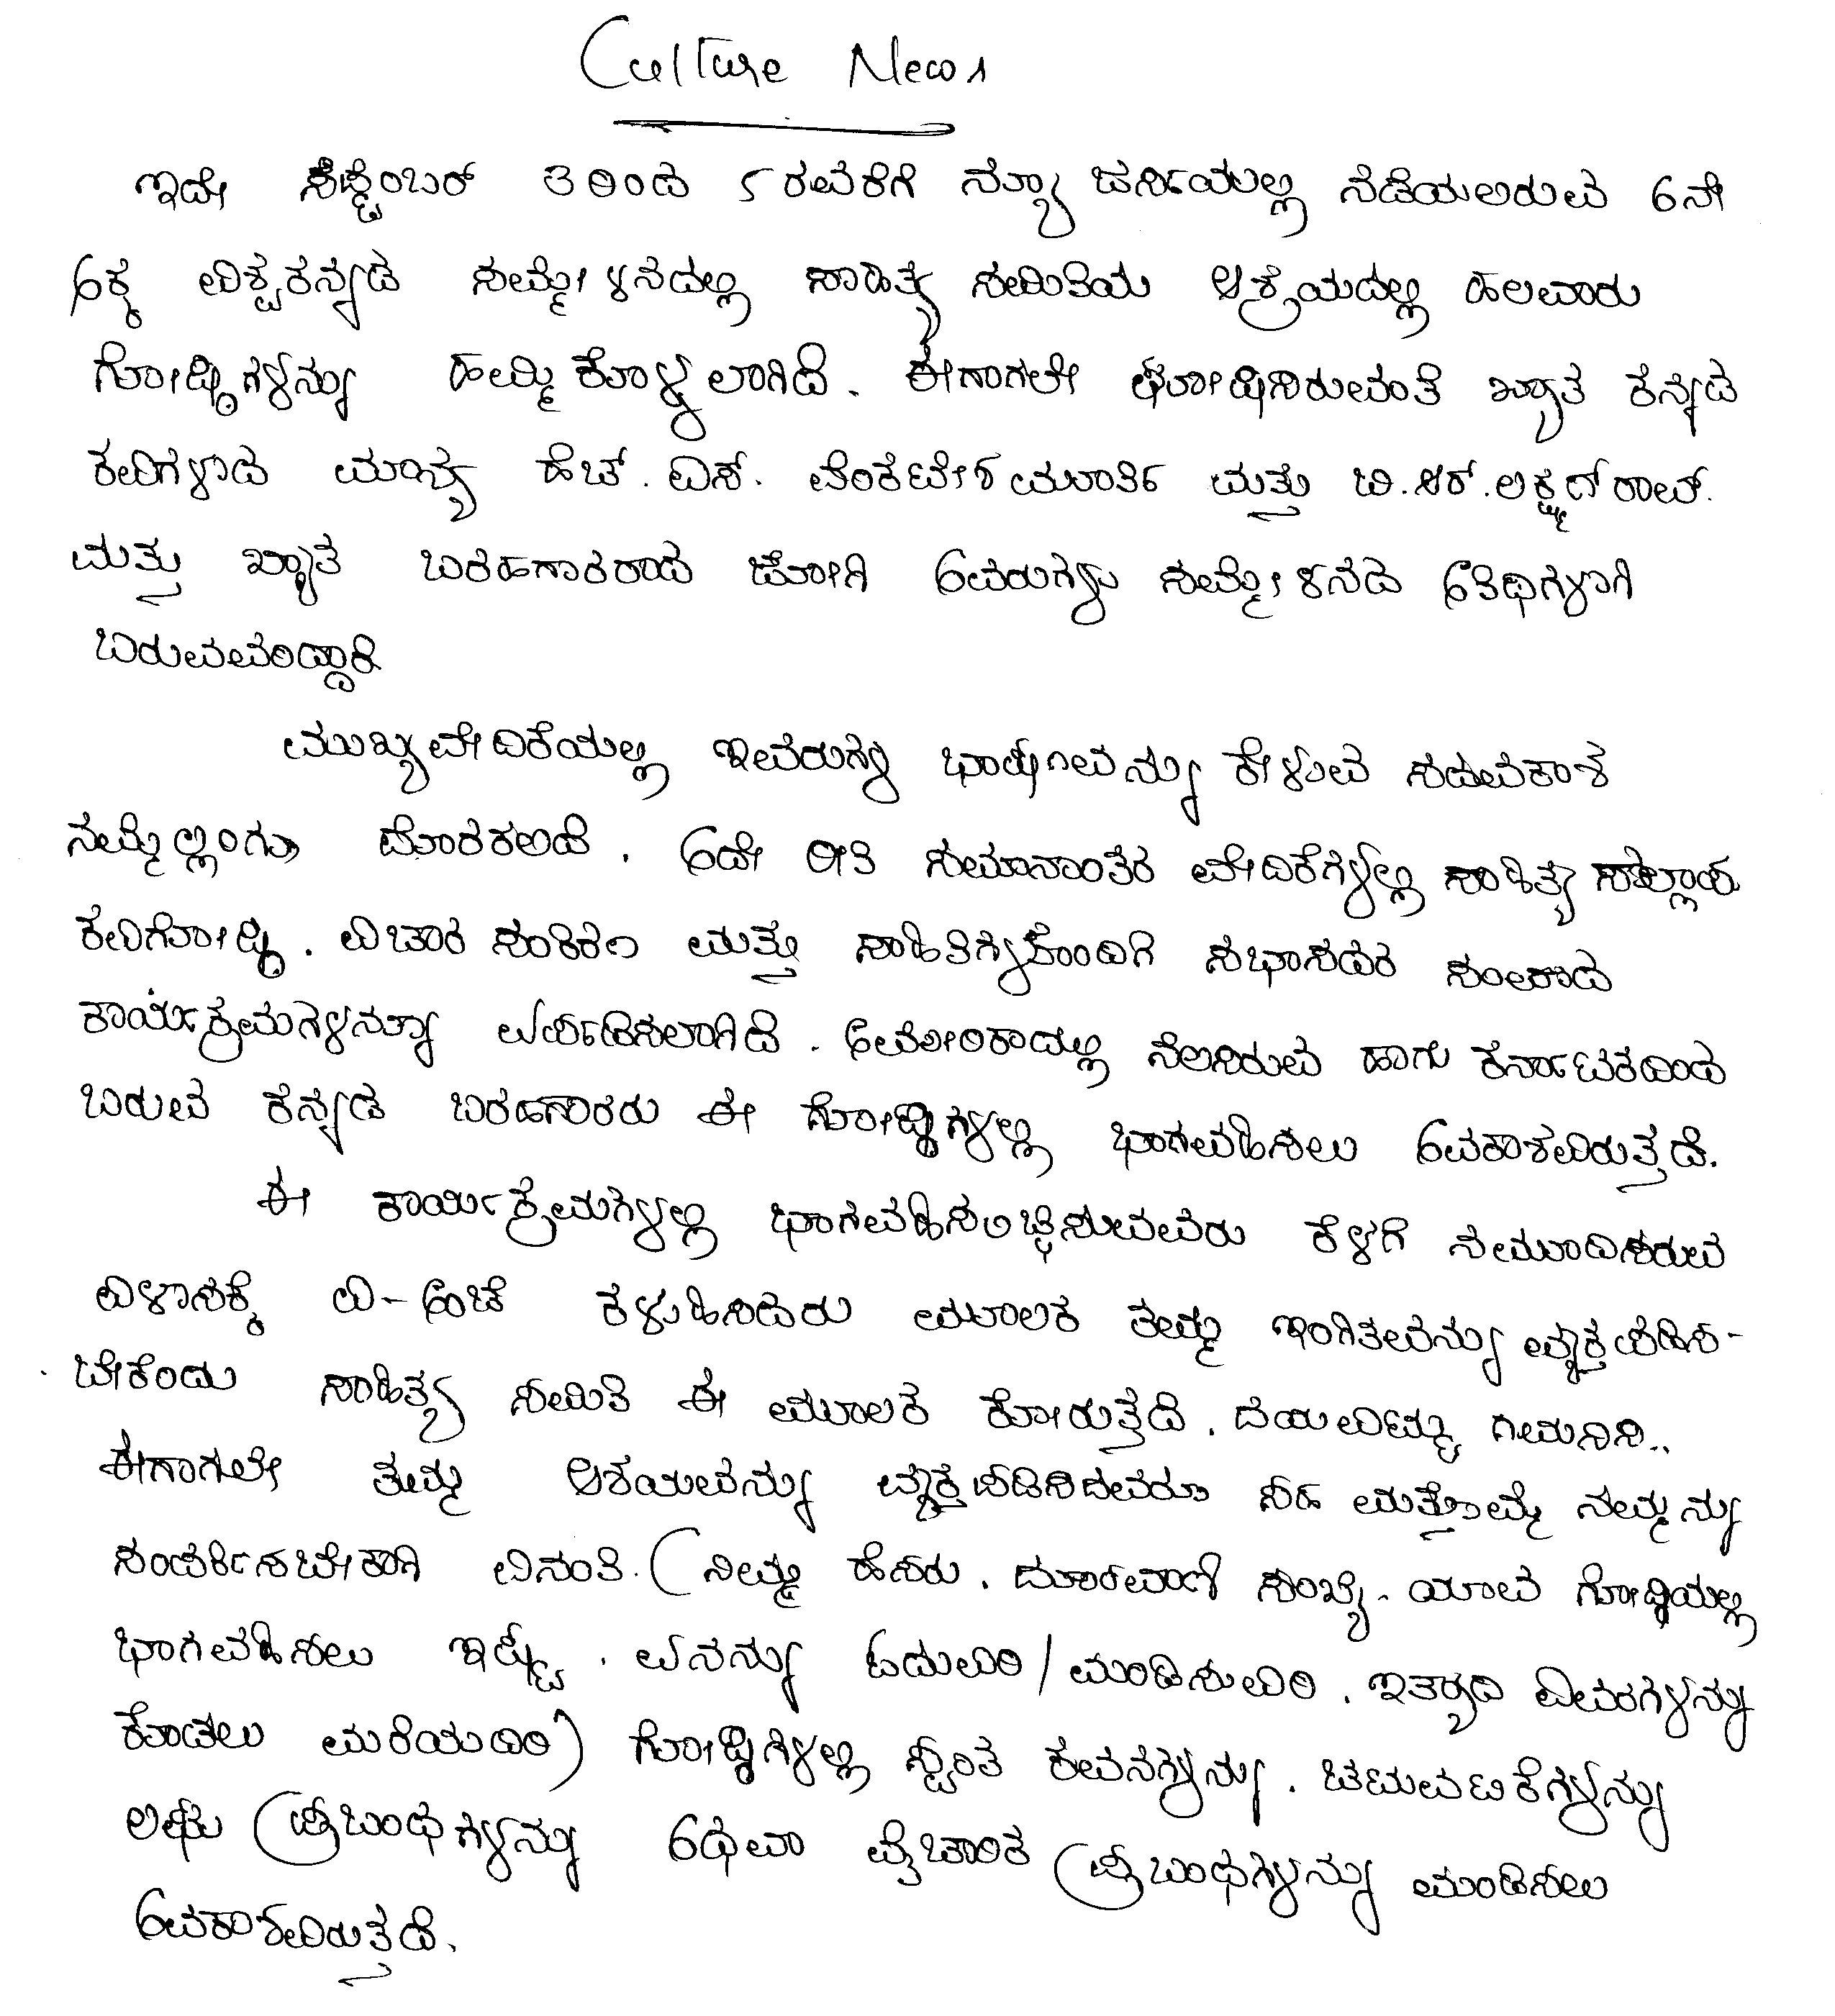 Culture News
ಇದೇ ಸೆಪ್ಟೆಂಬರ್ 3 ರಿಂದ 5 ರವರೆಗೆ ನ್ಯೂ ಜರ್ಸಿಯಲ್ಲಿ ನಡೆಯಲಿರುವ 6ನೇ
ಅಕ್ಕ ವಿಶ್ವಕನ್ನಡ ಸಮ್ಮೇಳನದಲ್ಲಿ ಸಾಹಿತ್ಯ ಸಮಿತಿಯ ಆಶ್ರಯದಲ್ಲಿ ಹಲವಾರು
ಗೋಷ್ಠಿಗಳನ್ನು ಹಮ್ಮಿಕೊಳ್ಳಲಾಗಿದೆ. ಈಗಾಗಲೇ ಘೋಷಿಸಿರುವಂತೆ ಖ್ಯಾತ ಕನ್ನಡ
ಕವಿಗಳಾದ ಮಾನ್ಯ ಹೆಚ್. ಎಸ್. ವೆಂಕಟೇಶಮೂರ್ತಿ ಮತ್ತು ಬಿ.ಆರ್.ಲಕ್ಷ್ಮಣ್ ರಾವ್.
ಮತ್ತು ಖ್ಯಾತ ಬರಹಗಾರರಾದ ಜೋಗಿ ಅವರುಗಳು ಸಮ್ಮೇಳನದ ಅತಿಥಿಗಳಾಗಿ
ಬರುವವರಿದ್ದಾರೆ
ಮುಖ್ಯವೇದಿಕೆಯಲ್ಲಿ ಇವರುಗಳ ಭಾಷಣವನ್ನು ಕೇಳುವ ಸದವಕಾಶ
ನಮ್ಮೆಲ್ಲರಿಗೂ ದೊರಕಲಿದೆ. ಅದೇ ರೀತಿ ಸಮಾನಾಂತರ ವೇದಿಕೆಗಳಲ್ಲಿ ಸಾಹಿತ್ಯ ಸಲ್ಲಾಪ
ಕವಿಗೋಷ್ಠಿ. ವಿಚಾರ ಸಂಕಿರಣ ಮತ್ತು ಸಾಹಿತಿಗಳೊಂದಿಗೆ ಸಭಾಸದರ ಸಂವಾದ
ಕಾರ್ಯಕ್ರಮಗಳನ್ನೂ ಏರ್ಪಡಿಸಲಾಗಿದೆ. ಅಮೇರಿಕಾದಲ್ಲಿ ನೆಲಸಿರುವ ಹಾಗು ಕರ್ನಾಟಕದಿಂದ
ಬರುವ ಕನ್ನಡ ಬರಹಗಾರರು ಈ ಗೋಷ್ಠಿಗಳಲ್ಲಿ ಭಾಗವಹಿಸಲು ಅವಕಾಶವಿರುತ್ತದೆ.
ಈ ಕಾರ್ಯಕ್ರಮಗಳಲ್ಲಿ ಭಾಗವಹಿಸಲಿಚ್ಛಿಸುವವರು ಕೆಳಗೆ ನಮೂದಿಸಿರುವ
ವಿಳಾಸಕ್ಕೆ ವಿ-ಅಂಚೆ ಕಳುಹಿಸಿದರು ಮೂಲಕ ತಮ್ಮ ಇಂಗಿತವನ್ನು ವ್ಯಕ್ತಪಡಿಸ-
ಬೇಕೆಂದು ಸಾಹಿತ್ಯ ಸಮಿತಿ ಈ ಮೂಲಕ ಕೋರುತ್ತದೆ. ದಯವಿಟ್ಟು ಗಮನಿಸಿ..
ಈಗಾಗಲೇ ತಮ್ಮ ಆಶಯವನ್ನು ವ್ಯಕ್ತಪಡಿಸಿದವರೂ ಸಹ ಮತ್ತೊಮ್ಮೆ ನಮ್ಮನ್ನು
ಸಂಪರ್ಕಿಸಬೇಕಾಗಿ ವಿನಂತಿ. (ನಿಮ್ಮ ಹೆಸರು. ದೂರವಾಣಿ ಸಂಖ್ಯೆ. ಯಾವ ಗೋಷ್ಠಿಯಲ್ಲಿ
ಭಾಗವಹಿಸಲು ಇಷ್ಟ. ಏನನ್ನು ಓದುವಿರಿ/ಮಂಡಿಸುವಿರಿ. ಇತ್ಯಾದಿ ವಿವರಗಳನ್ನು
ಕೊಡಲು ಮರೆಯದಿರಿ) ಗೋಷ್ಠಿಗಳಲ್ಲಿ ಸ್ವಂತ ಕವನಗಳನ್ನು. ಚಟುವಟಿಕೆಗಳನ್ನು
ಲಘು ಪ್ರಬಂಧಗಳನ್ನು ಅಥವಾ ವೈಚಾರಿಕ ಪ್ರಬಂಧಗಳನ್ನು ಮಂಡಿಸಲು
ಅವಕಾಶವಿರುತ್ತದೆ.